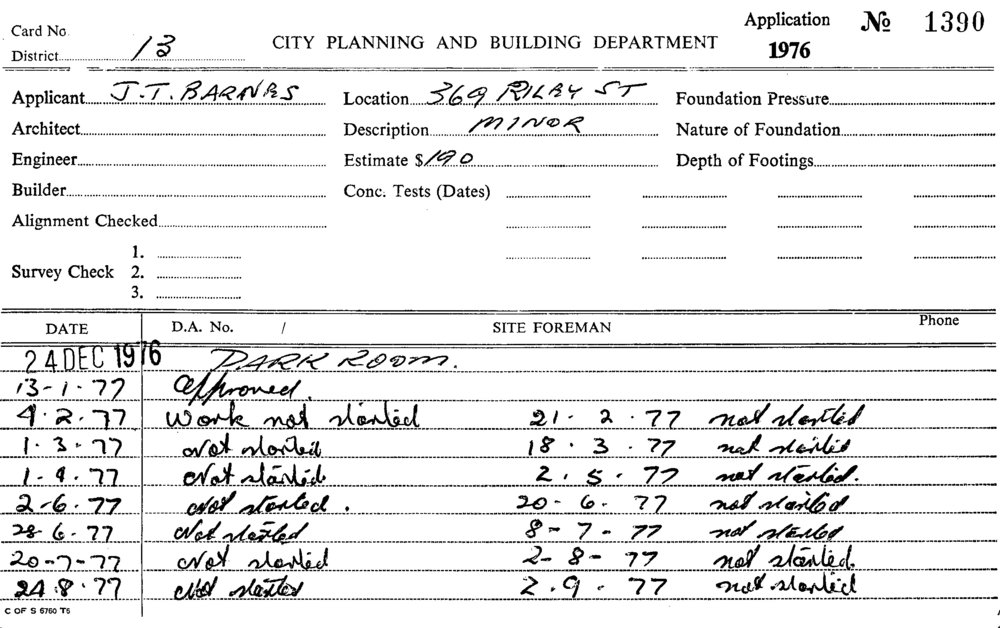 Card No.
Application № 1390
District 13 CITY PLANNING AND BUILDING DEPARTMENT 1976
Applicant J.T. BARNES Location 369 RILEY ST Foundation Pressure
Architect Description MINOR Nature of Foundation
Engineer Estimate $190 Depth of Footings
Builder Conc. Tests (Dates)
Alignment Checked
1.
Survey Check 2.
3.
DATE D.A. No. / SITE FOREMAN Phone
24 DEC 1976 DARK ROOM.
13-1-77 Approved.
4.2.77 Work not started 21.2.77 not started
1.3.77 Not started 18.3.77 not started
1-4.77 Not started 2.5.77 not started.
2-6.77 Not started. 20-6.77 not started
28-6.77 Not started 8-7-77 not started
20-7-77 Not started 2-8-77 not started.
24.8.77 Not started 2.9.77 not started
C OF S 6760 T6